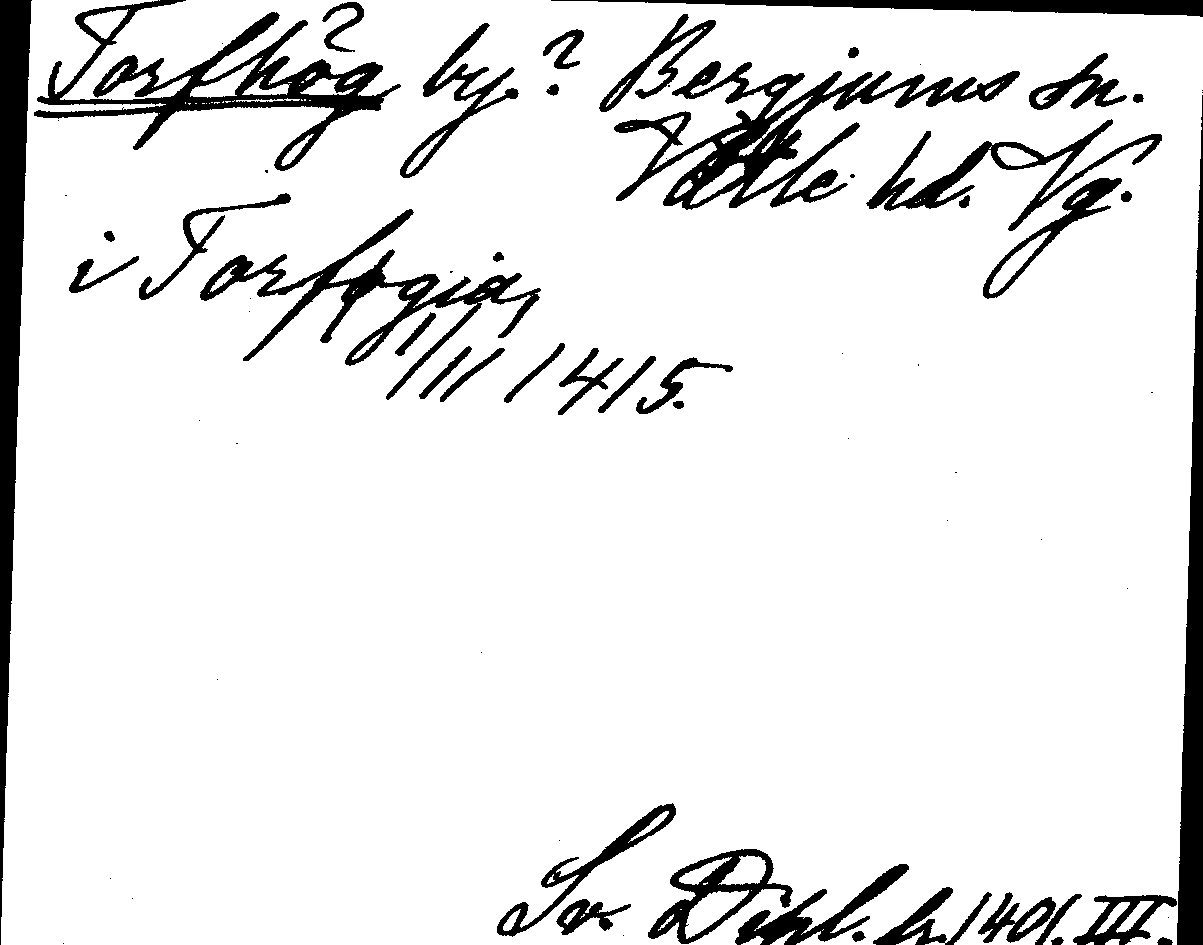 Torfhög by.? Bergjums sn.
Vättle hd. Vg.
i Torføgia,
11/11 1415.
Sv. Dipl. fr. 1401. III.